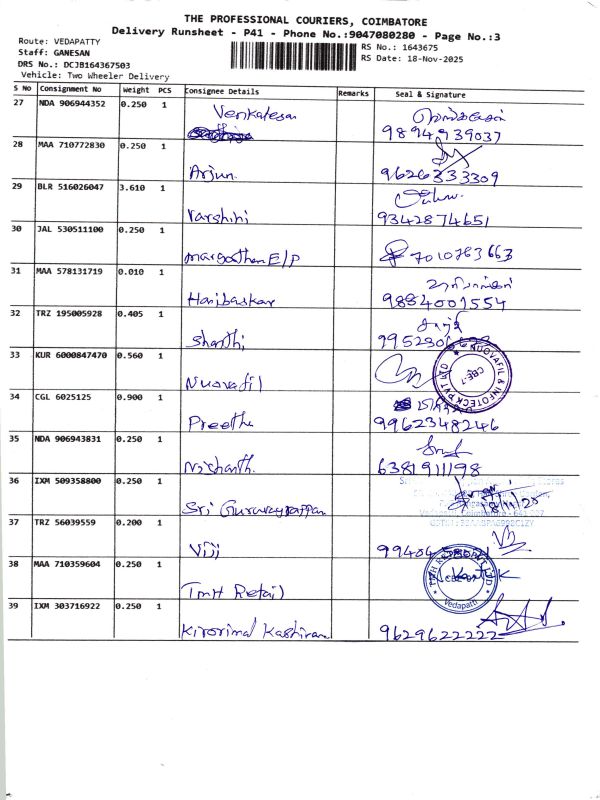 THE PROFESSIONAL COURIERS, COIMBATORE
Delivery Runsheet - P41 - Phone No.:9047080280 - Page No.:3
Route: VEDAPATTY
Staff: GANESAN
DRS No.: DCJB164367503
Vehicle: Two Wheeler Delivery
RS No.: 1643675
RS Date: 18-Nov-2025
S No Consignment No Weight PCS Consignee Details Remarks Seal & Signature
27 NDA 906944352 0.250 1 Venkatesan
9894939037
28 MAA 710772830 0.250 1
Arjun. 9626333309
29 BLR 516026047 3.610 1
Varshini 9342874651
30 JAL 530511100 0.250 1
Margothan E/P 7010763663
31 MAA 578131719 0.010 1
Haribaskar 9884001554
32 TRZ 195005928 0.405 1 சாந்தி
Shanthi
33 KUR 6000847470 0.560 1
Nuovafil
NUOVAFIL & INFOTECK PVT LTD
CBE-7
34 CGL 6025125 0.900 1
Preetha 9962348246
35 NDA 906943831 0.250 1
Nishanth. 6381911198
36 IXM 509358800 0.250 1
Sri Guruvayrappan 18/11/25
37 TRZ 56039559 0.200 1
Viji 99404
38 MAA 710359604 0.250 1
TMH Retail
Vedapatti
39 IXM 303716922 0.250 1
Kirorimal Kashiram 9629622222